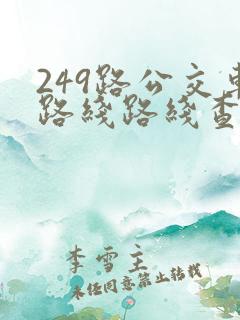 249路公交车
路线路线查
李雪主
未经同意禁止转载